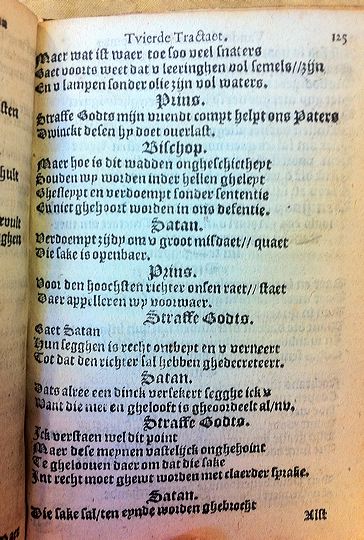 Tvierde Tractaet. 125
Maer wat ist waer toe soo veel snaters
Gaet voorts weet dat v leeringhen vol semels//zijn
En v lampen sonder olie zijn vol waters.
Prins.
Straffe Godts mijn vriendt compt helpt ons Paters
Dwinckt desen hy doet overlast.
Bischop.
Maer hoe is dit wadden ongheschictheyt
Souden wy worden inder hellen gheleyt
Ghesleypt en verdoempt sonder sententie
En niet ghehoort worden in ons defentie.
Satan.
Verdoempt zijdy om v groot misdaet// quaet
Die sake is openbaer.
Prins.
Voor den hoochsten richter onsen raet// staet
Daer appelleren wy voorwaer.
Straffe Godts.
Gaet Satan
Hun segghen is recht ontbeyt en v verneert
Tot dat den richter sal hebben ghedecreteert.
Satan.
Dats alree een dinck versekert segghe ick v
Want die niet en ghelooft is gheoordeelt al/nv.
Straffe Godts.
Ick verstaen wel dit point
Maer dese meynen vastelijck onghehoint
Te ghelooven daer om dat die sake
Int recht moet ghewt worden met claerder sprake.
Satan.
Die sake sal/ten eynde worden ghebrocht
Alst
sten
hult
rvult
ghen